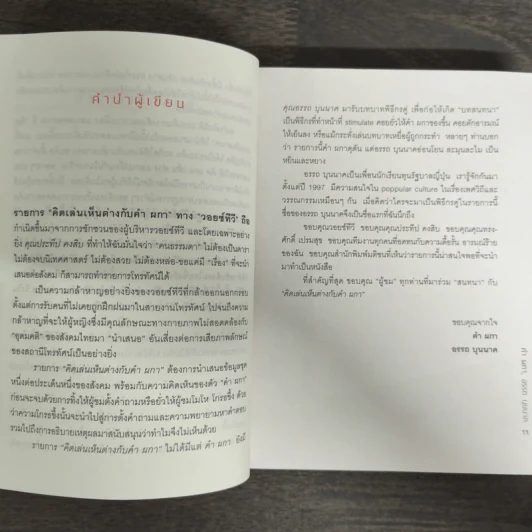 คำนำผู้เขียน
รายการ "คิดเล่นเห็นต่างกับคำ ผกา" ทาง "วอยซ์ทีวี" ถือ
กำเนิดขึ้นมาจากการชักชวนของผู้บริหารวอยซ์ทีวี และโดยเฉพาะอย่าง
ยิ่ง คุณประทีป คงสิบ ที่ทำให้ฉันมั่นใจว่า "คนธรรมดา" ไม่ต้องเป็นดารา
ไม่ต้องจบนิเทศศาสตร์ ไม่ต้องสวย ไม่ต้องหล่อ-ขอแค่มี "เรื่อง" ที่จะนำ
เสนอต่อสังคม ก็สามารถทำรายการโทรทัศน์ได้
เป็นความกล้าหาญอย่างยิ่งของวอยซ์ทีวีที่กล้าออกนอกกรอบ
ตั้งแต่การรับคนที่ไม่เคยถูกฝึกฝนมาในสายงานโทรทัศน์ ไปจนถึงความ
กล้าหาญที่จะให้ผู้หญิงซึ่งมีคุณลักษณะทางกายภาพไม่สอดคล้องกับ
"อุดมคติ" ของสังคมไทยมา "นำเสนอ" อันเสี่ยงต่อการเสียภาพลักษณ์
ของสถานีโทรทัศน์เป็นอย่างยิ่ง
รายการ "คิดเล่นเห็นต่างกับคำ ผกา" ต้องการนำเสนอข้อมูลชุด
หนึ่งต่อประเด็นหนึ่งของสังคม พร้อมกับความคิดเห็นของตัว "คำ ผกา"
ก่อนจะจบด้วยการทิ้งให้ผู้ชมตั้งคำถามหรือยั่วให้ผู้ชมโมโห โกรธขึ้ง ด้วย
ว่าความโกรธขึ้งนั้นจะนำไปสู่การตั้งคำถามและความพยายามหาคำตอบ
รวมไปถึงการอธิบายเหตุผลมาสนับสนุนว่าทำไมจึงไม่เห็นด้วย
รายการ "คิดเล่นเห็นต่างกับคำ ผกา" ไม่ได้มีแต่ คำ ผกา ยังมี
คุณอรรถ บุนนาค มารับบทบาทพิธีกรคู่ เพื่อก่อให้เกิด "บทสนทนา"
เป็นพิธีกรที่ทำหน้าที่ stimulate คอยยั่วให้คำ ผกาของขึ้น คอยดักอารมณ์
ให้เย็นลง หรือแม้กระทั่งเล่นบทบาทเหยื่อผู้ถูกกระทำ หลายๆ ท่านบอก
ว่า รายการนี้คำ ผกาดุดัน แต่อรรถ บุนนาคอ่อนโยน ละมุนละไม เป็น
หยินและหยาง
บุนนาคเป็นเพื่อนนักเรียนทุนรัฐบาลญี่ปุ่น เรารู้จักกันมา
ตั้งแต่ปี 1997 มีความสนใจใน poppular culture ในเรื่องเพศวิถีและ
วรรณกรรมเหมือนๆ กัน เมื่อคิดว่าใครจะมาเป็นพิธีกรคู่ในรายการนี้
ชื่อของอรรถ บุนนาคจึงเป็นชื่อแรกที่ฉันนึกถึง
ขอบคุณวอยซ์ทีวี ขอบคุณคุณประทีป คงสิบ ขอบคุณคุณทรง-
ศักดิ์ เปรมสุข ขอบคุณทีมงานทุกคนที่อดทนกับความดื้อรั้น อารมณ์ร้าย
ของฉัน ขอบคุณสำนักพิมพ์มติชนที่เห็นว่ารายการนี้น่าสนใจพอที่จะนำ
มาทำเป็นหนังสือ
ที่สำคัญที่สุด ขอบคุณ "ผู้ชม" ทุกท่านที่มาร่วม "สนทนา" กับ
"คิดเล่นเห็นต่างกับคำ ผกา"
ขอบคุณจากใจ
คำ ผกา
อรรถ บุนนาค
คำ ผกา, อรรถ บุนนาค
11